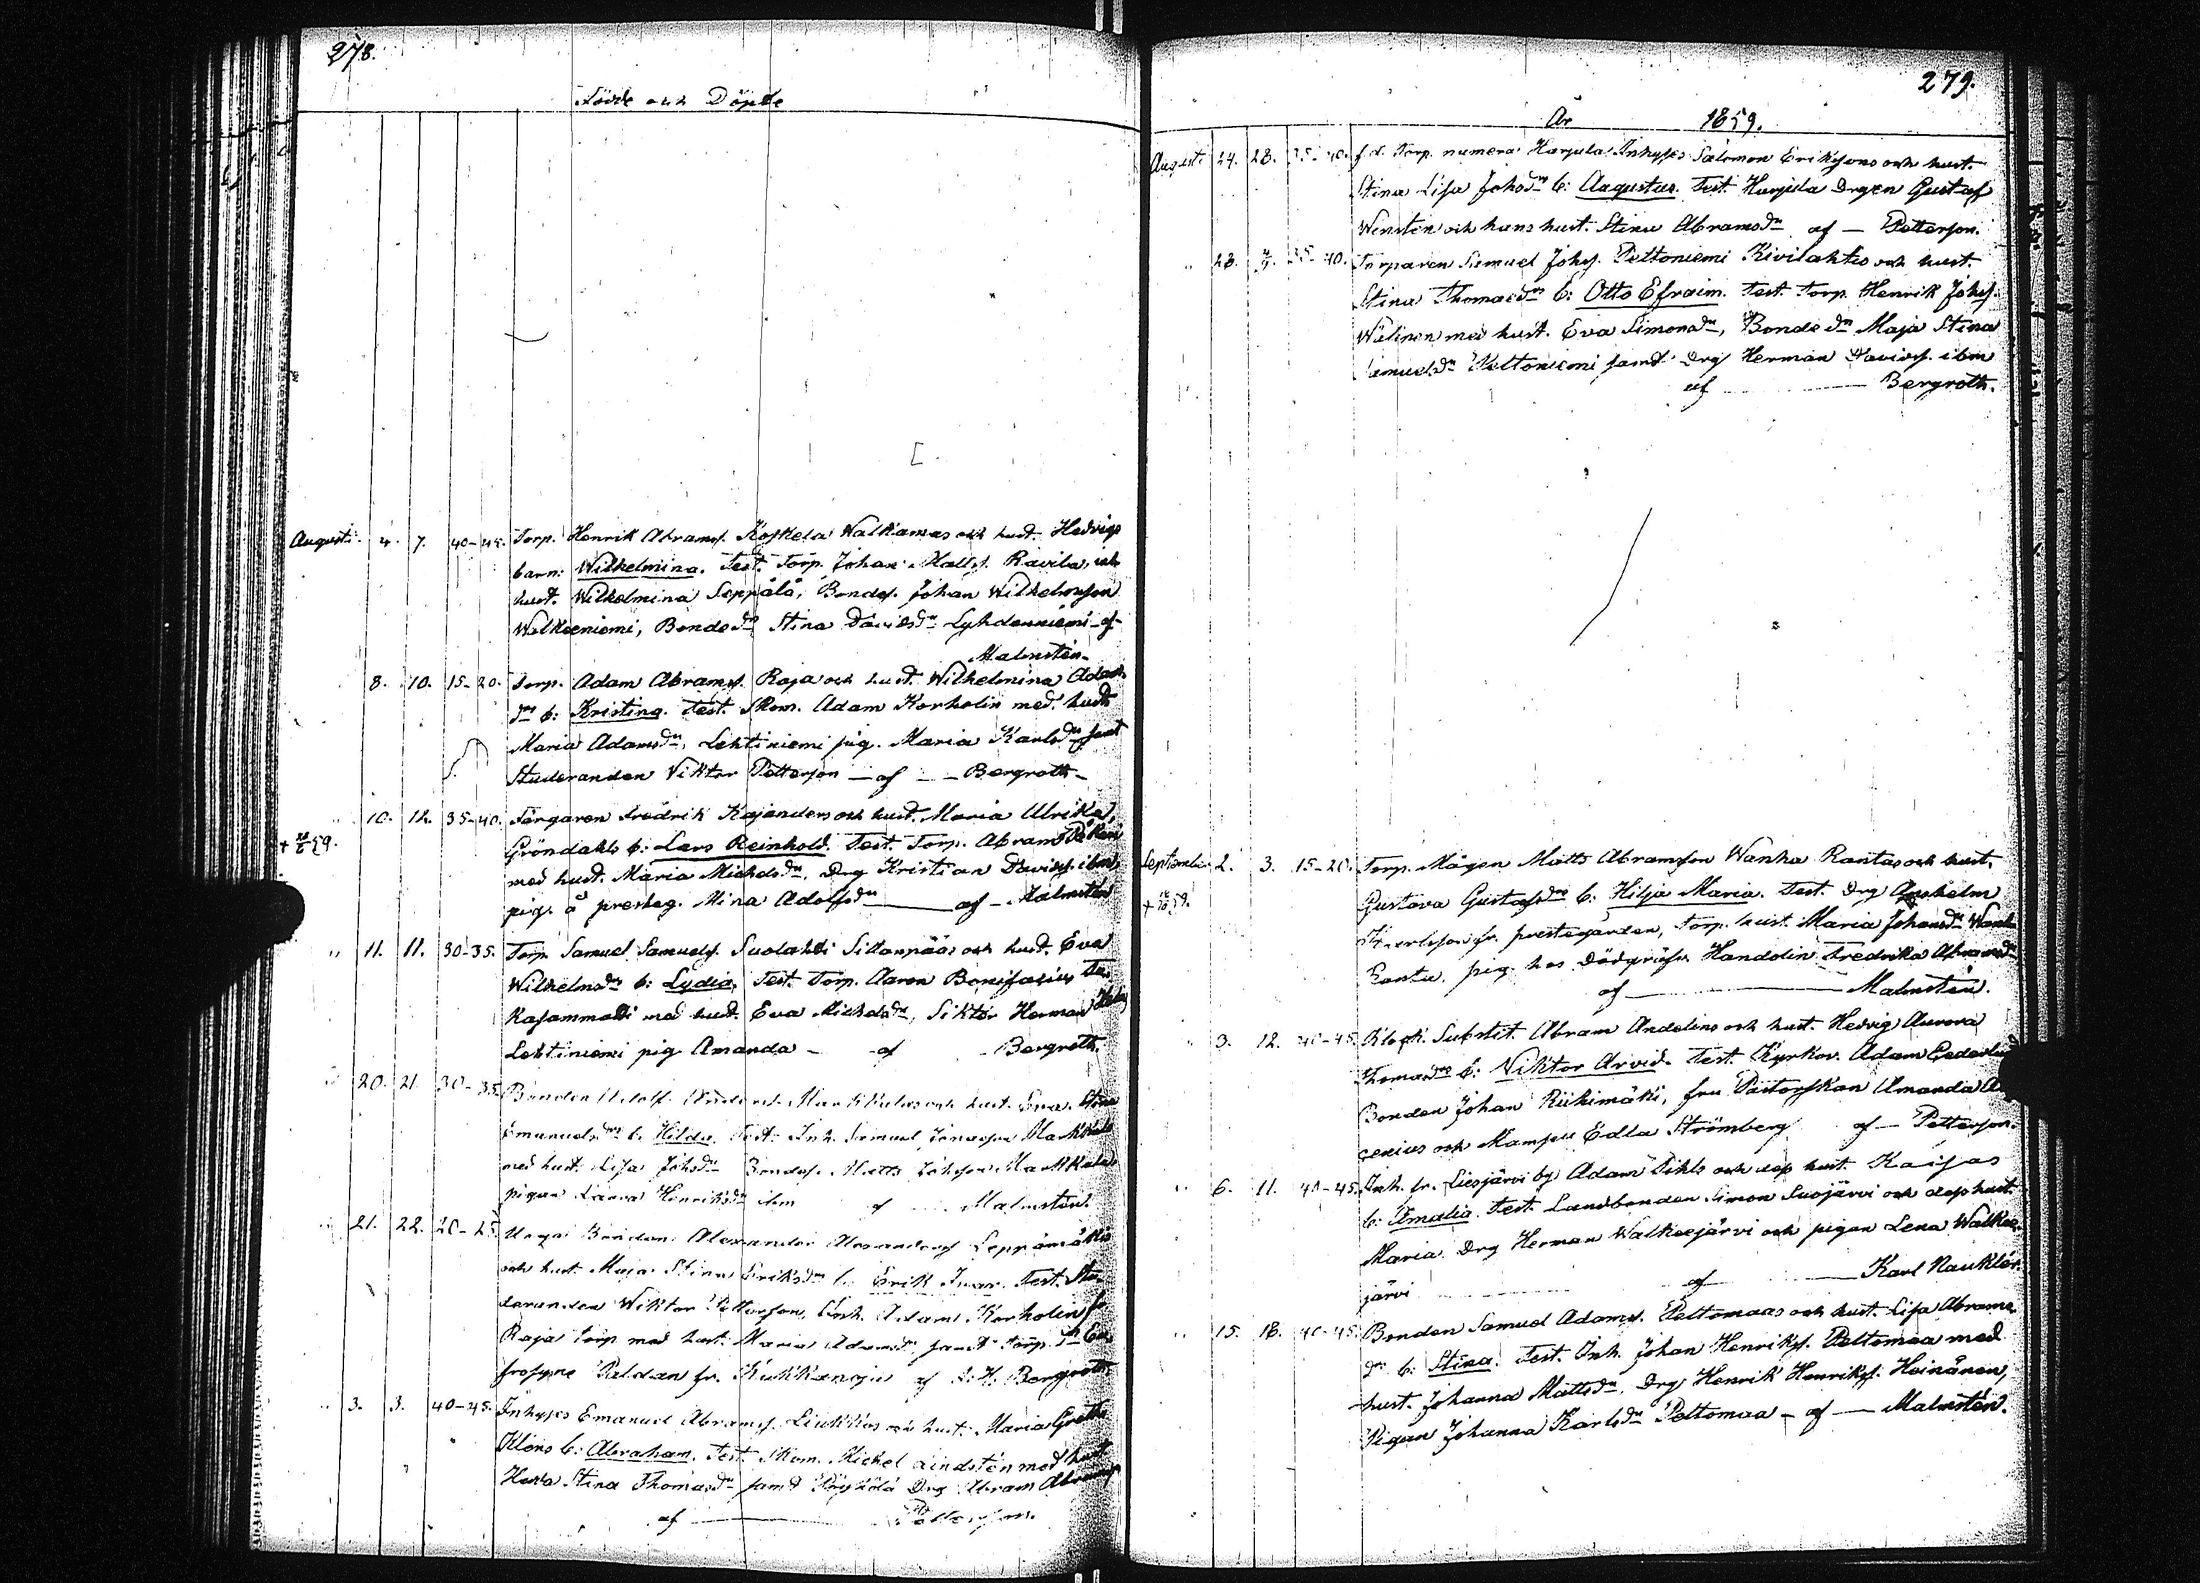 278.
Födde och Döpte
Augusti. 4. 7. 40-45. Torp. Henrik Abramss. Koskela Walkamas och hust. Hedvigs
barn: Wilhelmina. Test. Torp. Johan Matts. Ravila, och
hust. Wilhelmina Seppälä, Bondes. Johan Wilhelmsson
Walkeeniemi, Bonde dr Stina Davidsdr Lyhdenniemi - af -
Malmstén.
8. 10. 15-20. Torp. Adam Abramss. Raja och hust. Wilhelmina Adams
dr b: Kristina. Test. Skom. Adam Korholin med hust.
Maria Adamsdr, Lehtiniemi pig. Maria Karlsdr samt
Studeranden Viktor Petterson - af - Bergroth -
" 10. 12. 35-40. Färgaren Fredrik Kajanders och hust. Maria Ulrika
+ 59. Gröndahls b: Lars Reinhold. Test. Torp. Abram
med hust. Maria Michelsdr, Drg Kristian Davidss. ibm,
pig. å presteg. Mina Adolfsdr - af - Malmstén
" 11. 11. 30-35. Torp. Samuel Samuelss. Suolahti Sillanpääs och hust. Eva
Wilhelmsdr b: Lydia. Test. Torp. Aaron Bonifacius
Kasammatti med hust. Eva Michelsdr, Herman
Lehtiniemi pig. Amanda - af - Bergroth.
" 20. 21. 30-35. Bonden Adolf Markkulas och hust. Eva Stina
Emanuelsdr b. Hilda. Test. Inh. Samuel Jonasson Markkula
med hust. Lisa Johsdr Bondes. Matts Johsson Markkula
pigan Henriksdr ibm af Malmstén.
" 21. 22. 20-25. Unga Bonden Alexander Alexanders. Leppämäkis
och hust. Maja Stina Eriksdr b. Erik Ivar. Test. Stu-
deranden Wiktor Petterson, Inh. Adam Korholin fr.
Raja torp med hust. Maria Adamsdr samt Torp. dr Eu-
frosyne Paldan fr. af Bergroth
" 3. 3. 40-45. Inhyses Emanuel Abramss. Liukkos och hust. Maria Greta
b: Abraham. Test. Skom. Michel Lindstén med hust.
Stina Thomasdr samt Drg Abram Abramss.
af - Petterson.
279.
År 1859.
Augusti 24. 28. 35-40. f.d. Torp. numera Harjula Inhyses Salomon Eriksons och hust.
Stina Lisa Johsdr b: Augustus. Test. Harjula Drgen Gustaf
Wenstén och hans hust. Stina Abramsdr af - Petterson.
" 28. 4/9. 35-40. Torparen Samuel Johss. Peltoniemi Kivilahtis och hust.
Stina Thomasdr b: Otto Efraim. Test. Torp. Henrik Johss.
Wälinen med hust. Eva Simonsdr, Bonde dr Maja Stina
Samuelsdr Peltoniemi samt Drg Herman Davidss. ibm
af - Bergroth.
September 2. 3. 15-20. Torp. Mågen Matts Abramsson Wanha Rantas och hust.
+ 59. Gustava Gustafsdr b: Hilja Maria. Test. Drg Anshelm
fr. prestegården, Torp. hust. Maria Johansdr Wanha
Ranta, pig. hos Dödgräfv. Handolin Fredrika Abramsdr
af - Malmstén.
" 3. 12. 40-45. Klock. Substit. Abram Andelins och hust. Hedvig Aurora
Thomasdr b: Viktor Arvid. Test. Kyrkov. Adam Cederlöf
Bonden Johan Riihimäki, fru Pastorskan Amanda
cenius och Mamsell Edla Strömberg af - Petterson.
" 6. 11. 40-45. Inh. fr. Liesjärvi by Adam Pihls och dess hust. Kaisas
b: Amalia. Test. Landbonden Simon Suojärvi och dess hust.
Maria. Drg Herman Walkeejärvi och pigan Lena Walkee-
järvi - af - Karl Nauklér.
" 15. 18. 40-45. Bonden Samuel Adamss. Peltomaas och hust. Lisa Abrams
dr b: Stina. Test. Inh. Johan Henrikss. Peltomaa med
hust. Johanna Mattsdr, Drg Henrik Henrikss. Heinänen,
Pigan Johanna Karlsdr Peltomaa - af - Malmstén.